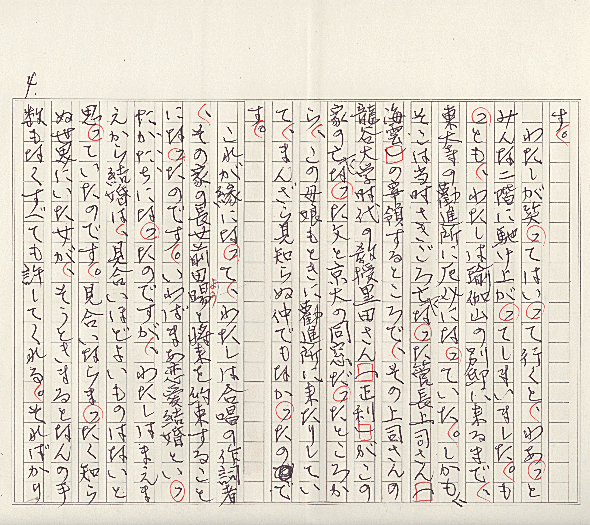 4.
す。
わたしが笑ってはいって行くと、わあっと
みんな二階に馳け上がってしまいました。も
っとも、わたしは瑜伽山の別邸に来るまで、
東大寺の勧進所に厄介になっていた。しかも
そこは当時さきごろ亡なった管長上司さん(
海雲)の宰領するところで、その上司さんの
龍谷大学時代の教授里田さん(正利)がこの
家の亡なった父と京大の同窓だったところか
ら、この母娘もときに勧進所に来たりしてい
て、まんざら見知らぬ仲でもなかったので
す。
これが縁になって、わたしは合唱の作詞者
、その家の長女前田暘と将来を約束すること
よう
になったのです。いわばまあ恋愛結婚といっ
たかたちになったのですが、わたしはまえま
えから結婚は、見合いほどよいものはないと
思っていたのです。見合いならまったく知ら
ぬ世界にいた女が、そうときまるとなんの手
数もなくすべても許してくれる。そればかり